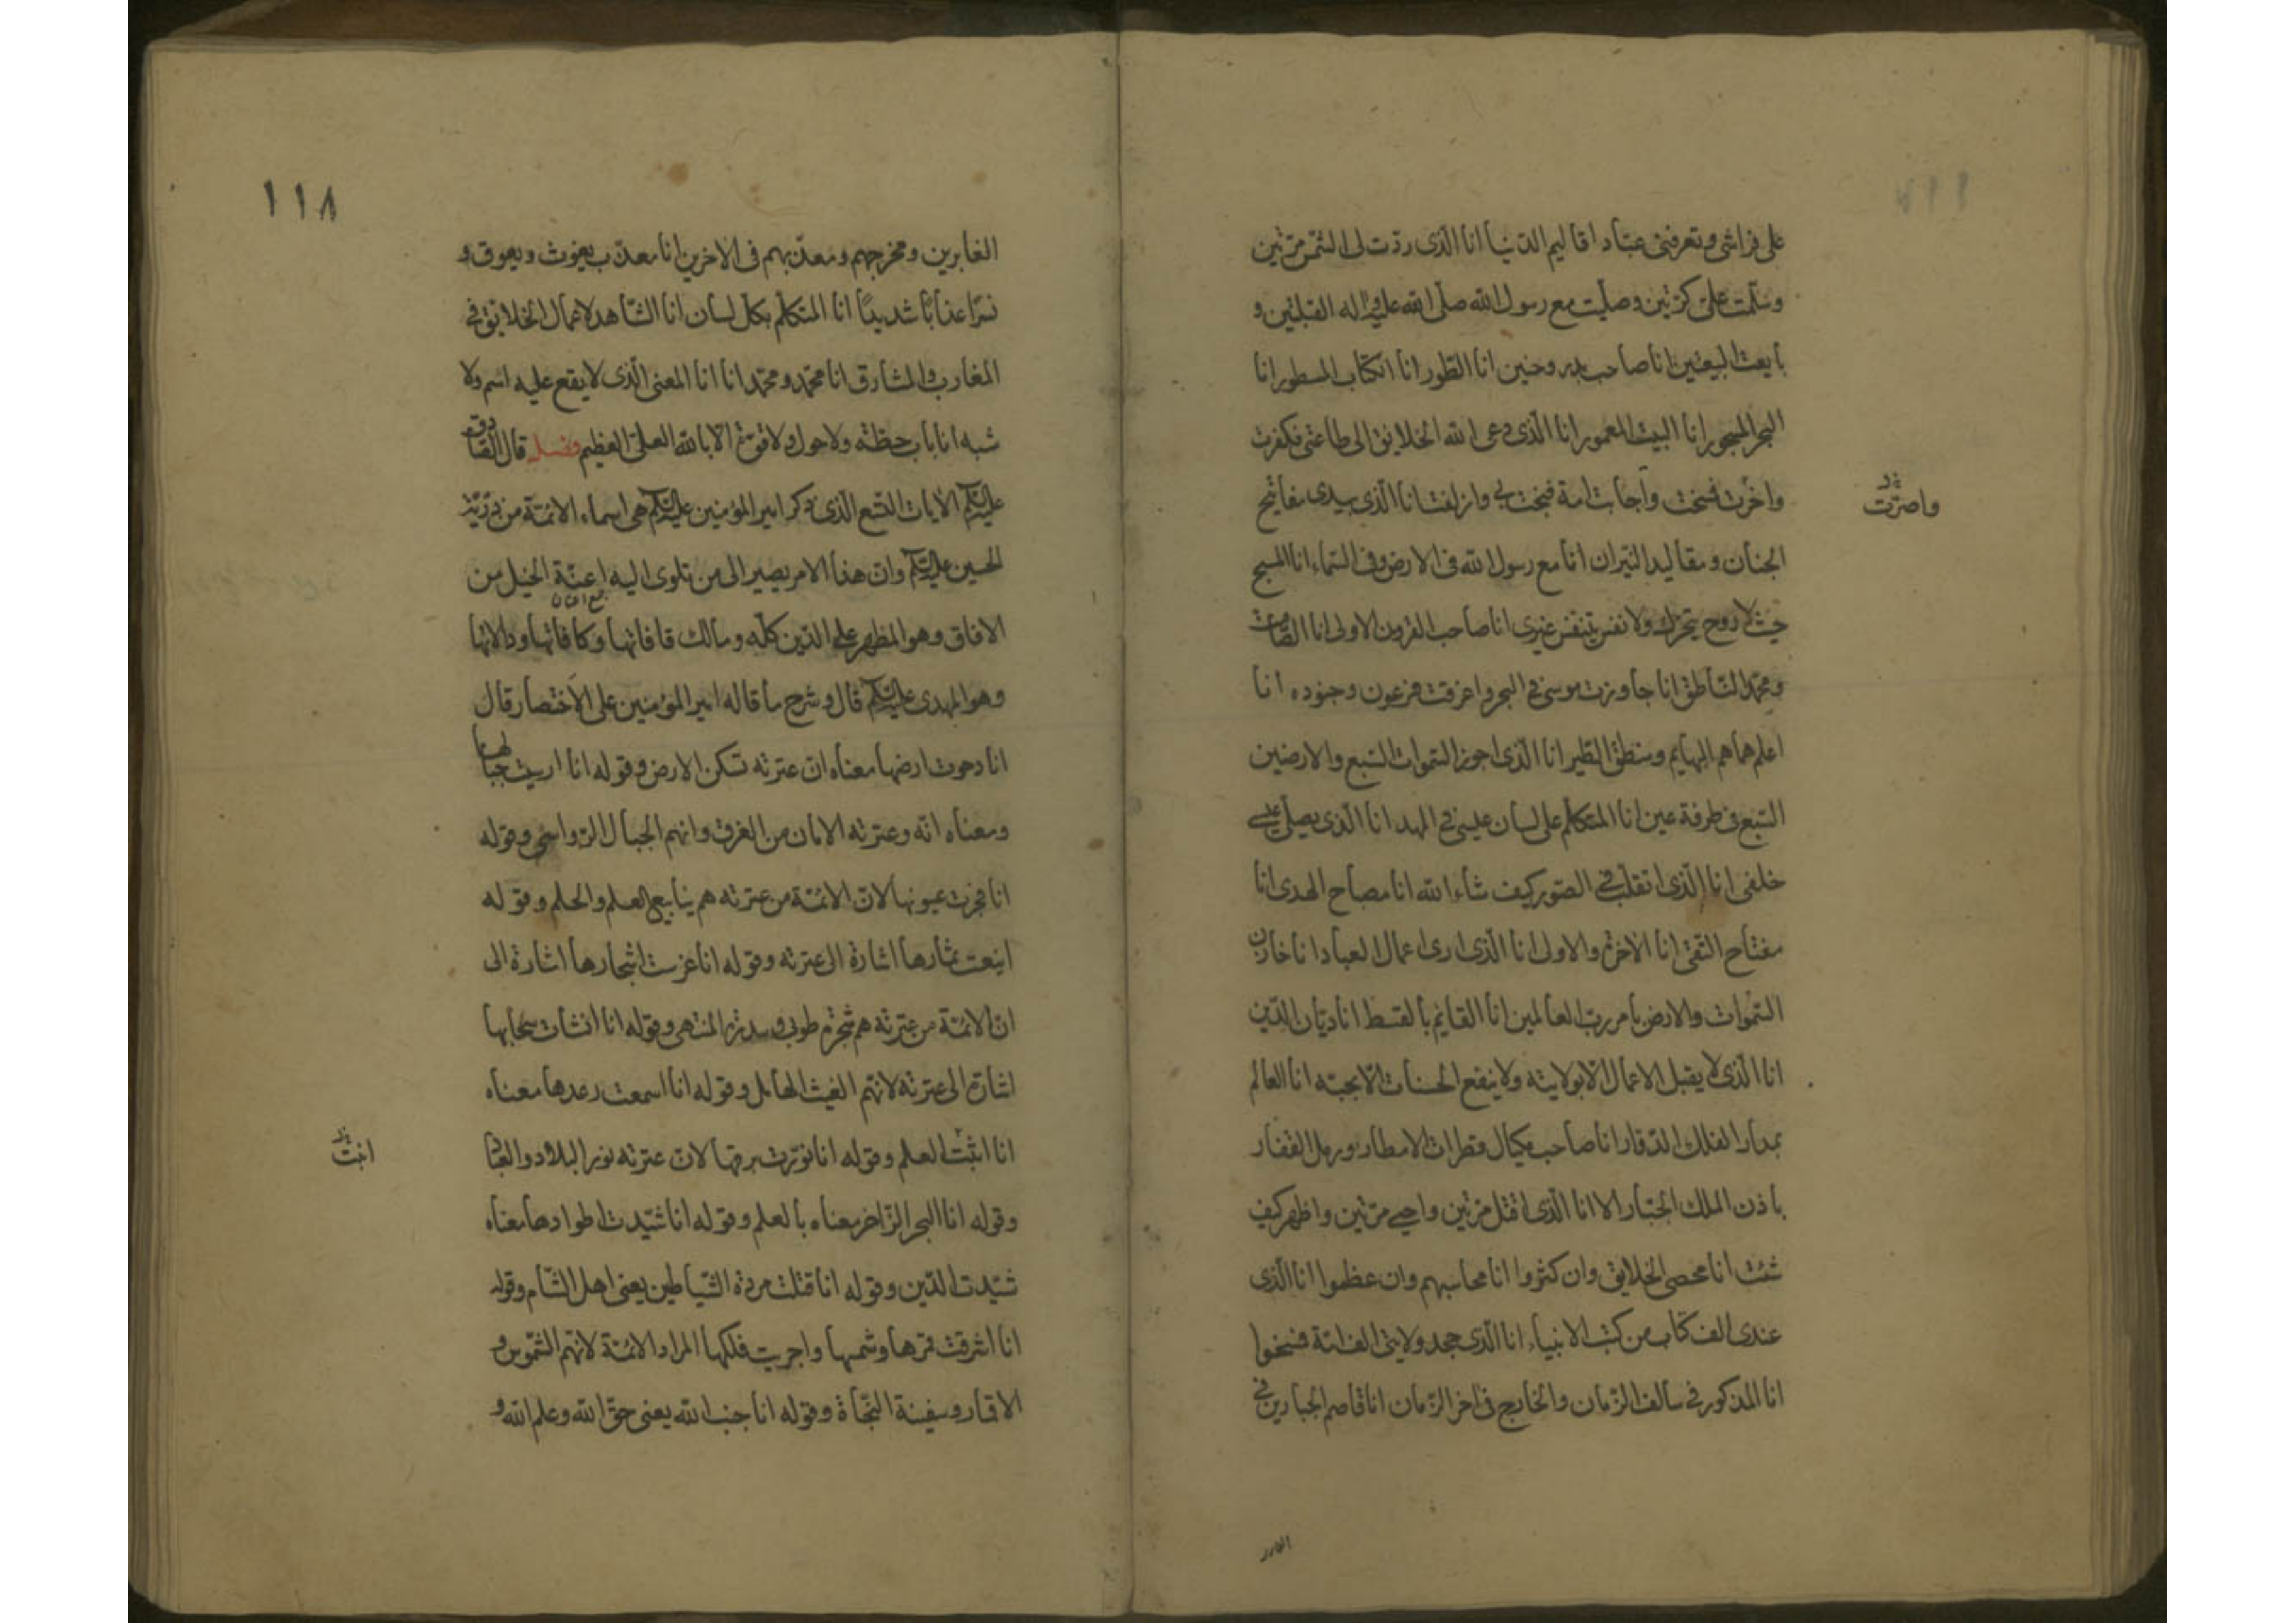 على فراشى وتعرفنى عباد اقاليم الدنيا انا الذى ردت لى الشمس مرتين
وسلمت على كرتين وصليت مع رسول الله صلى الله عليه واله القبلتين و
بايعت البيعتين انا صاحب بدر وحنين انا الطور انا الكتاب المسطور انا
البحر المسجور انا البيت المعمور انا الذى دعى الله الخلايق الى طاعتى فكفرت
واخرت فمسخت واجابت امة فنجت بى وازلفت انا الذى بيدى مفاتيح
واصرّت
الجنان ومقاليد النيران انا مع رسول الله فى الارض وفى السماء انا المسيح
حيث لا روح يتحرك ولا نفس يتنفس غيرى انا صاحب القرون الاولى انا الصامت
ومحمد الناطق انا جاوزت موسى فى البحر واغرقت فرعون وجنوده انا
اعلم هماهم البهايم ومنطق الطير انا الذى اجوز السموات السبع والارضين
السبع فى طرفة عين انا المتكلم على لسان عيسى فى المهد انا الذى يصلى عيسى
خلفى انا الذى اتقلب فى الصور كيف شاء الله انا مصباح الهدى انا
مفتاح التقى انا الاخرة والاولى انا الذى ارى اعمال العباد انا خازن
السموات والارض بامر رب العالمين انا القايم بالقسط انا ديان الدين
انا الذى لا يقبل الاعمال الا بولايته ولا ينفع الحسنات الا بحبه انا العالم
بمدار الفلك الدقار انا صاحب مكيال قطرات الامطار ورمل القفار
باذن الملك الجبار الا انا الذى اقتل مرتين واحيى مرتين واظهر كيف
شئت انا محصى الخلايق وان كثروا انا محاسبهم وان عظموا انا الذى
عندى الف كتاب من كتب الانبياء انا الذى جحد ولايتى الف امة فمسخوا
انا المذكور فى سالف الزمان والخارج فى اخر الزمان انا قاصم الجبارين فى
الغابر
١١٨
الغابرين ومخرجهم ومعذبهم فى الاخرين انا معذب يغوث ويعوق و
نسرا عذابا شديدا انا المتكلم بكل لسان انا الشاهد لاعمال الخلايق فى
المغارب والمشارق انا محمد ومحمد انا انا المعنى الذى لا يقع عليه اسم ولا
شبه انا باب حطته ولا حول ولا قوة الا بالله العلى العظيم فصل قال الصادق
عليه السلم الايات التسع الذى ذكر امير المؤمنين عليه السلم هى اسماء الائمة من ذرية
الحسين عليه السلم وان هذا الامر يصير الى من تلوى اليه اعنة الخيل من
الافاق وهو المظهر على الدين كله ومالك قافاتها وكافاتها ودالاتها
وهو المهدى عليه السلم قال وشرح ما قاله امير المؤمنين على الاختصار قال
انا دحوت ارضها معناه ان عترته تسكن الارض وقوله انا ارسيت جبالها
ومعناه انه وعترته الامان من الغرق وانهم الجبال الرواسى وقوله
انا فجرت عيونها لان الائمة من عترته هم ينابيع العلم والحلم وقوله
اينعت ثمارها اشارة الى عترته وقوله انا غرست اشجارها اشارة الى
ان الائمة من عترته هم شجرة طوبى وسدرة المنتهى وقوله انا انشات سحابها
اشارة الى عترته لانهم الغيث الهامل وقوله انا اسمعت رعدها معناه
انا اثبت العلم وقوله انا نورت برقها لان عترته نور البلاد والعباد
وقوله انا البحر الزاخر معناه بالعلم وقوله انا شيدت اطوادها معناه
شيدت الدين وقوله انا قتلت مردة الشياطين يعنى اهل الشام وقوله
انا اشرقت قمرها وشمسها واجريت فلكها المراد الائمة لانهم الشموس و
الاقمار وسفينة النجاة وقوله انا جنب الله يعنى حق الله وعلم الله و